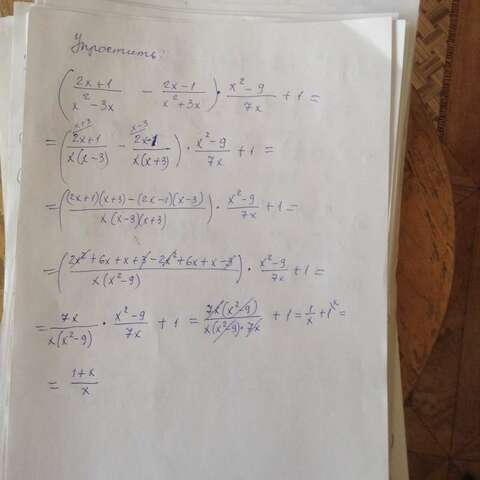 Упростить:
((2x+1)/(x²-3x) - (2x-1)/(x²+3x)) · (x²-9)/(7x) + 1 =
= ((2x+1)/(x(x-3)) ^(x+3) - (2x-1)/(x(x+3)) ^(x-3)) · (x²-9)/(7x) + 1 =
= (((2x+1)(x+3)-(2x-1)(x-3))/(x(x-3)(x+3))) · (x²-9)/(7x) + 1 =
= ((2x²+6x+x+3-2x²+6x+x-3)/(x(x²-9))) · (x²-9)/(7x) + 1 =
= 7x/(x(x²-9)) · (x²-9)/(7x) + 1 = 7x(x²-9)/(x(x²-9)·7x) + 1 = 1/x + 1^x =
= (1+x)/x